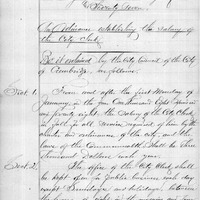 Seventy Seven.
An Ordinance establishing the Salary
of the City Clerk.
Be it ordained by the City Council of the City
of Cambridge, as follows:
Sect. 1. From and after the first Monday of
January in the year One thousand Eight hundred
seventy eight, the Salary of the City Clerk
in full for all services required of him by the
and ordinances of the City, and the
laws of the Commonwealth, shall be three
thousand Dollars each year.
Sect. 2. The office of the City Clerk shall
be kept open for public business each day
except Sundays and holidays between
the hours of eight in the morning and